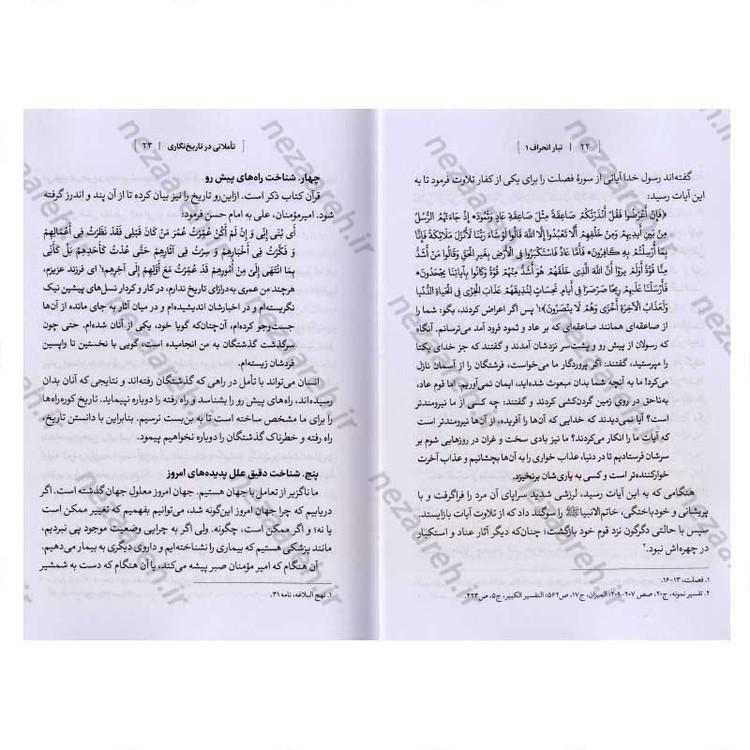 ۲۲ | تبار انحراف ۱
گفته‌اند رسول خدا آیاتی از سورهٔ فصلت را برای یکی از کفار تلاوت فرمود تا به
این آیات رسید:
﴿فَإِنْ أَعْرَضُوا فَقُلْ أَنْذَرْتُكُمْ صَاعِقَةً مِثْلَ صَاعِقَةِ عَادٍ وَثَمُودَ* إِذْ جَاءَتْهُمُ الرُّسُلُ
مِنْ بَيْنِ أَيْدِيهِمْ وَمِنْ خَلْفِهِمْ أَلَّا تَعْبُدُوا إِلَّا اللَّهَ قَالُوا لَوْ شَاءَ رَبُّنَا لَأَنْزَلَ مَلَائِكَةً فَإِنَّا
بِمَا أُرْسِلْتُمْ بِهِ كَافِرُونَ* فَأَمَّا عَادٌ فَاسْتَكْبَرُوا فِي الْأَرْضِ بِغَيْرِ الْحَقِّ وَقَالُوا مَنْ أَشَدُّ
مِنَّا قُوَّةً أَوَلَمْ يَرَوْا أَنَّ اللَّهَ الَّذِي خَلَقَهُمْ هُوَ أَشَدُّ مِنْهُمْ قُوَّةً وَكَانُوا بِآيَاتِنَا يَجْحَدُونَ*
فَأَرْسَلْنَا عَلَيْهِمْ رِيحًا صَرْصَرًا فِي أَيَّامٍ نَحِسَاتٍ لِنُذِيقَهُمْ عَذَابَ الْخِزْيِ فِي الْحَيَاةِ الدُّنْيَا
وَلَعَذَابُ الْآخِرَةِ أَخْزَى وَهُمْ لَا يُنْصَرُونَ﴾؛۱ پس اگر اعراض کردند، بگو: شما را
از صاعقه‌ای همانند صاعقه‌ای که بر عاد و ثمود فرود آمد می‌ترسانم. آنگاه
که رسولان از پیش رو و پشت‌سر نزدشان آمدند و گفتند: که جز خدای یکتا
را مپرستید، گفتند: اگر پروردگار ما می‌خواست، فرشتگان را از آسمان نازل
می‌کرد! ما به آنچه شما بدان مبعوث شده‌اید، ایمان نمی‌آوریم. اما قوم عاد،
به‌ناحق در روی زمین گردن‌کشی کردند و گفتند: چه کسی از ما نیرومندتر
است؟ آیا نمی‌دیدند که خدایی که آن‌ها را آفریده، از آن‌ها نیرومندتر است
که آیات ما را انکار می‌کردند؟ ما نیز بادی سخت و غران در روزهایی شوم بر
سرشان فرستادیم تا در دنیا، عذاب خواری را به آن‌ها بچشانیم و عذاب آخرت
خوارکننده‌تر است و کسی به یاری‌شان برنخیزد.
هنگامی که به این آیات رسید، لرزشی شدید سراپای آن مرد را فراگرفت و با
پریشانی و خودباختگی، خاتم‌الانبیا ﷺ را سوگند داد که از تلاوت آیات بازایستد.
سپس با حالتی دگرگون نزد قوم خود بازگشت؛ چنان‌که دیگر آثار عناد و استکبار
در چهره‌اش نبود.۲
۱. فصلت، ۱۳-۱۶.
۲. تفسیر نمونه، ج۲۰، صص ۲۰۷-۲۰۹؛ المیزان، ج۱۷، ص۵۶۲؛ التفسیر الکبیر، ج۵، ص۴۲۳.
تأملاتی در تاریخ‌نگاری | ۲۳
چهار. شناخت راه‌های پیش رو
قرآن کتاب ذکر است. ازاین‌رو تاریخ را نیز بیان کرده تا از آن پند و اندرز گرفته
شود. امیرمؤمنان، علی به امام حسن فرمود:
أَی بُنَی إِنِّی وَ إِنْ لَمْ أَکُنْ عُمِّرْتُ عُمُرَ مَنْ کَانَ قَبْلِی فَقَدْ نَظَرْتُ فِی أَعْمَالِهِمْ
وَ فَکَّرْتُ فِی أَخْبَارِهِمْ وَ سِرْتُ فِی آثَارِهِمْ حَتَّی عُدْتُ کَأَحَدِهِمْ بَلْ کَأَنِّی
بِمَا انْتَهَی إِلَیَّ مِنْ أُمُورِهِمْ قَدْ عُمِّرْتُ مَعَ أَوَّلِهِمْ إِلَی آخِرِهِمْ؛۱ ای فرزند عزیزم،
هرچند من عمری به‌درازای تاریخ ندارم، در کار و کردار نسل‌های پیشین نیک
نگریسته‌ام و در اخبارشان اندیشیده‌ام و در میان آثار به جای مانده از آن‌ها
جست‌وجو کرده‌ام، آن‌چنان‌که گویا خود، یکی از آنان شده‌ام. حتی چون
سرگذشت گذشتگان به من انجامیده است، گویی با نخستین تا واپسین
فردشان زیسته‌ام.
انسان می‌تواند با تأمل در راهی که گذشتگان رفته‌اند و نتایجی که آنان بدان
رسیده‌اند، راه‌های پیش روی را بشناسد و راه رفته را دوباره نپیماید. تاریخ کوره‌راه‌ها
را برای ما مشخص ساخته است تا به بن‌بست نرسیم. بنابراین با دانستن تاریخ،
راه رفته و خطرناک گذشتگان را دوباره نخواهیم پیمود.
پنج. شناخت دقیق علل پدیده‌های امروز
ما ناگزیر از تعامل با جهان هستیم. جهان امروز معلول جهان گذشته است. اگر
دریابیم که چرا جهان امروز این‌گونه شد، می‌توانیم بفهمیم که تغییر ممکن است
یا نه؛ و اگر ممکن است، چگونه. ولی اگر به چرایی وضعیت موجود پی نبردیم،
مانند پزشکی هستیم که بیماری را نشناخته‌ایم و داروی دیگری به بیمار می‌دهیم.
آن هنگام که امیر مؤمنان صبر پیشه می‌کند، یا آن هنگام که دست به شمشیر
۱. نهج البلاغه، نامه ۳۱.
nezaareh.ir